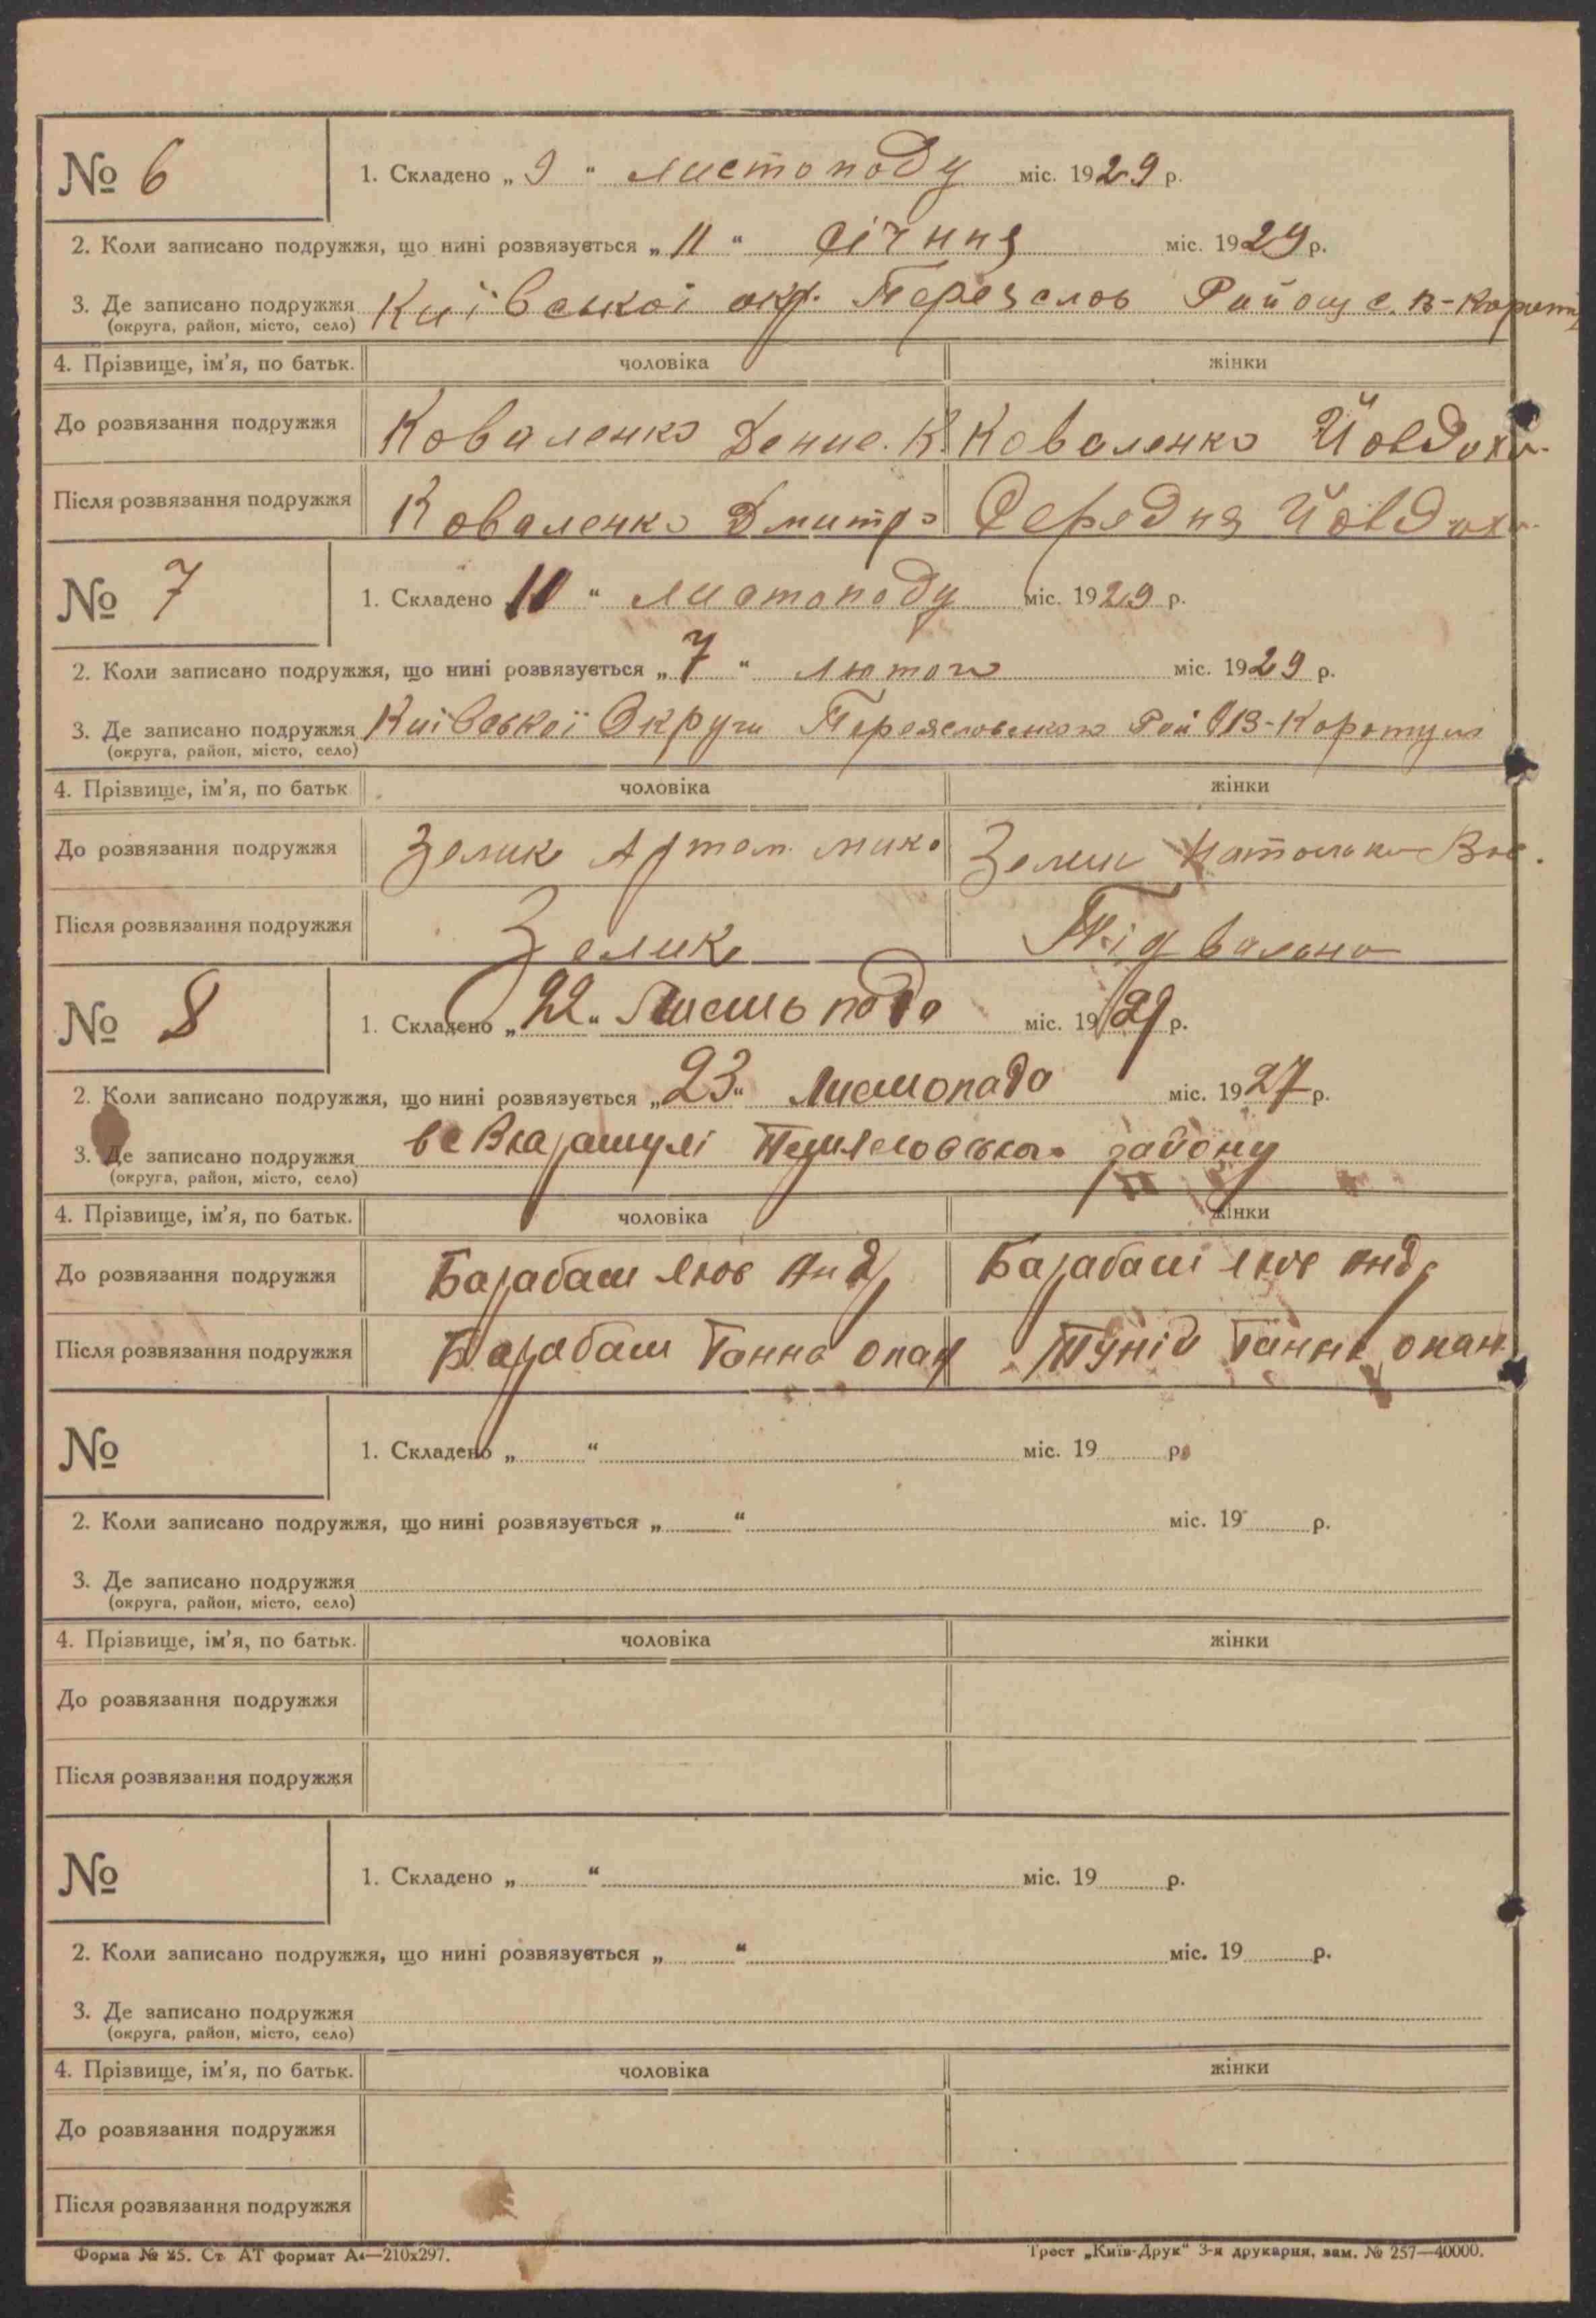 № 6
1. Складено „ 9 “ листопаду міс. 1929 р.
2. Коли записано подружжя, що нині розвязується „ 11 “ січння міс. 1929 р.
3. Де записано подружжя Київської окр. Переяслов Району с. В-Карат
(округа, район, місто, село)
4. Прізвище, ім’я, по батьк. чоловіка жінки
До розвязання подружжя Коваленко Денис. К. Коваленко Йовдоха
Після розвязання подружжя Коваленко Дмитро Середня Йовдоха
№ 7
1. Складено 10 “ листопаду міс. 1929 р.
2. Коли записано подружжя, що нині розвязується „ 7 “ лютого міс. 1929 р.
3. Де записано подружжя Київської Округи Переясловського Рай В-Каратулі
(округа, район, місто, село)
4. Прізвище, ім’я, по батьк. чоловіка жінки
До розвязання подружжя Зелик Артем мико
Після розвязання подружжя Зелик Підвальна
№ 8
1. Складено „ 22 “ листьпада міс. 1929 р.
2. Коли записано подружжя, що нині розвязується „ 23 “ листопада міс. 1927 р.
3. Де записано подружжя в с Вкаратулі району
(округа, район, місто, село)
4. Прізвище, ім’я, по батьк. чоловіка жінки
До розвязання подружжя Барабаш Яков Андр Барабаш Яков Андр
Після розвязання подружжя Барабаш Ганна опан Ганна опан
№
1. Складено „ “ міс. 19 р.
2. Коли записано подружжя, що нині розвязується „ “ міс. 19 р.
3. Де записано подружжя
(округа, район, місто, село)
4. Прізвище, ім’я, по батьк. чоловіка жінки
До розвязання подружжя
Після розвязання подружжя
№
1. Складено „ “ міс. 19 р.
2. Коли записано подружжя, що нині розвязується „ “ міс. 19 р.
3. Де записано подружжя
(округа, район, місто, село)
4. Прізвище, ім’я, по батьк. чоловіка жінки
До розвязання подружжя
Після розвязання подружжя
Форма № 25. Ст. АТ формат А4—210х297. Трест „Київ-Друк“ 3-я друкарня, зам. № 257—40000.